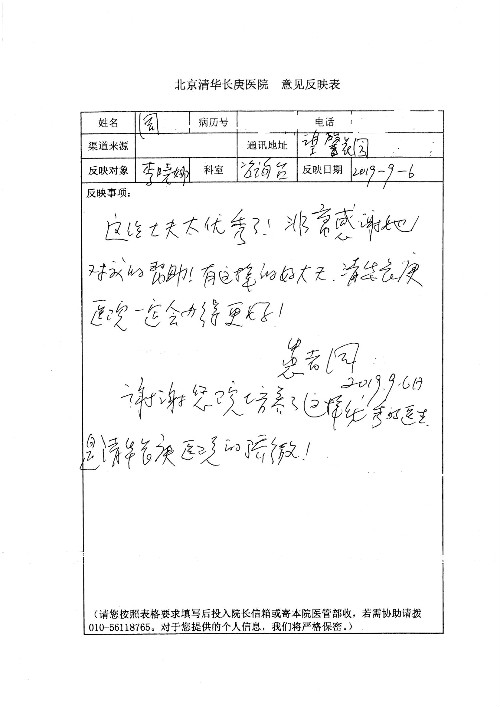 北京清华长庚医院 意见反映表
姓名 周 病历号 电话
渠道来源 通讯地址 望馨花园
反映对象 李晓娜 科室 咨询台 反映日期 2019-9-6
反映事项：
这位大夫太优秀了！非常感谢她
对我的帮助！有这样的好大夫，清华长庚
医院一定会办得更好！
患者周
2019.9.6日
谢谢您院培养了这样优秀的医生
是清华长庚医院的骄傲！
（请您按照表格要求填写后投入院长信箱或寄本院医管部收，若需协助请拨
010-56118765。对于您提供的个人信息，我们将严格保密。）